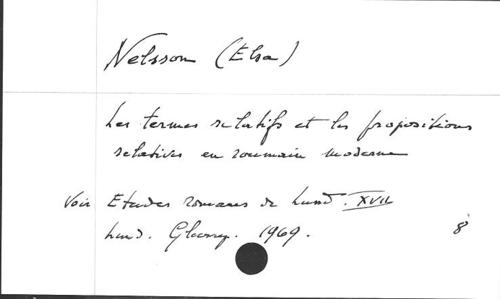 Nelsson (Elsa)
Les termes relatifs et les propositions
relatives en roumain moderne
Voir Etudes romanes de Lund. XVII
Lund. 1969. 8